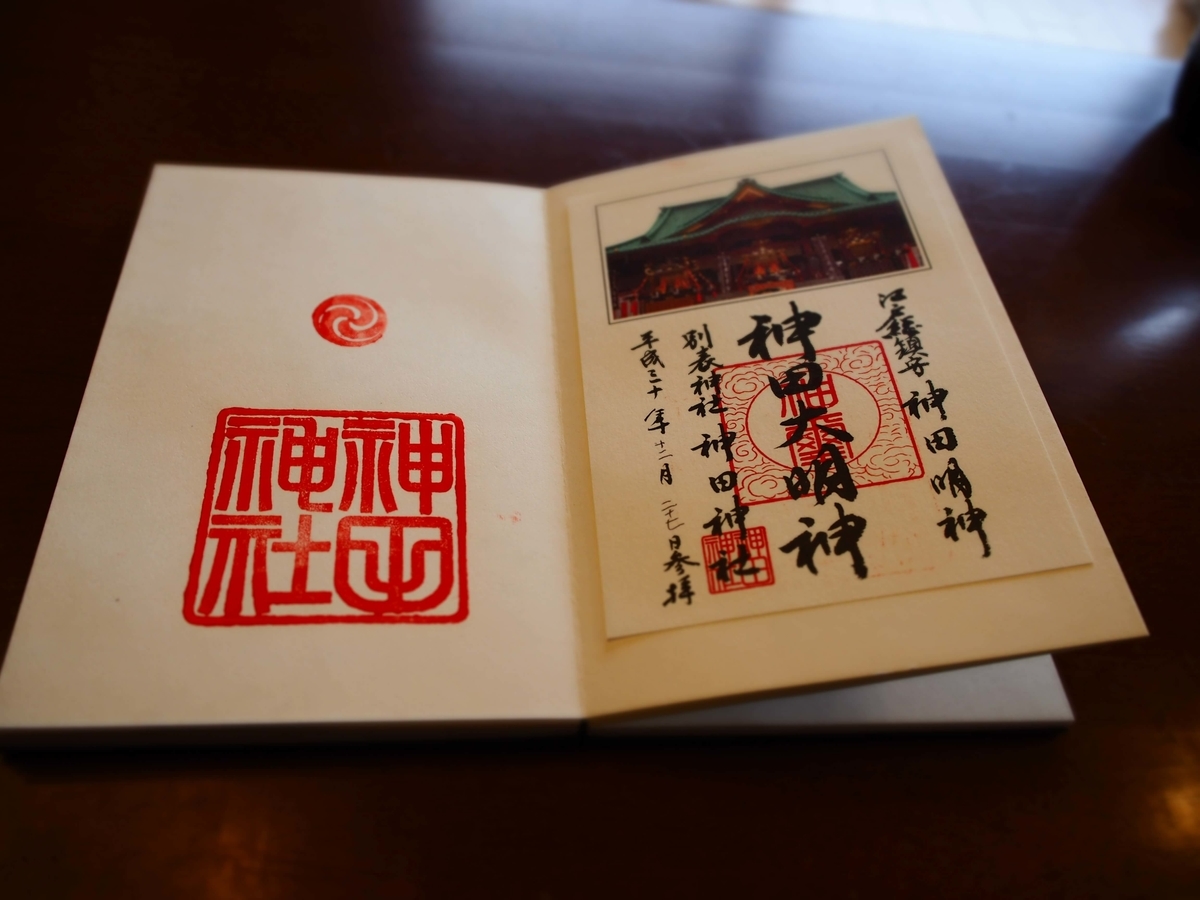 江戸総鎮守 神田明神
神田大明神
別表神社 神田神社
平成三十年十二月二十七日参拝
神田
神社
神田
神社